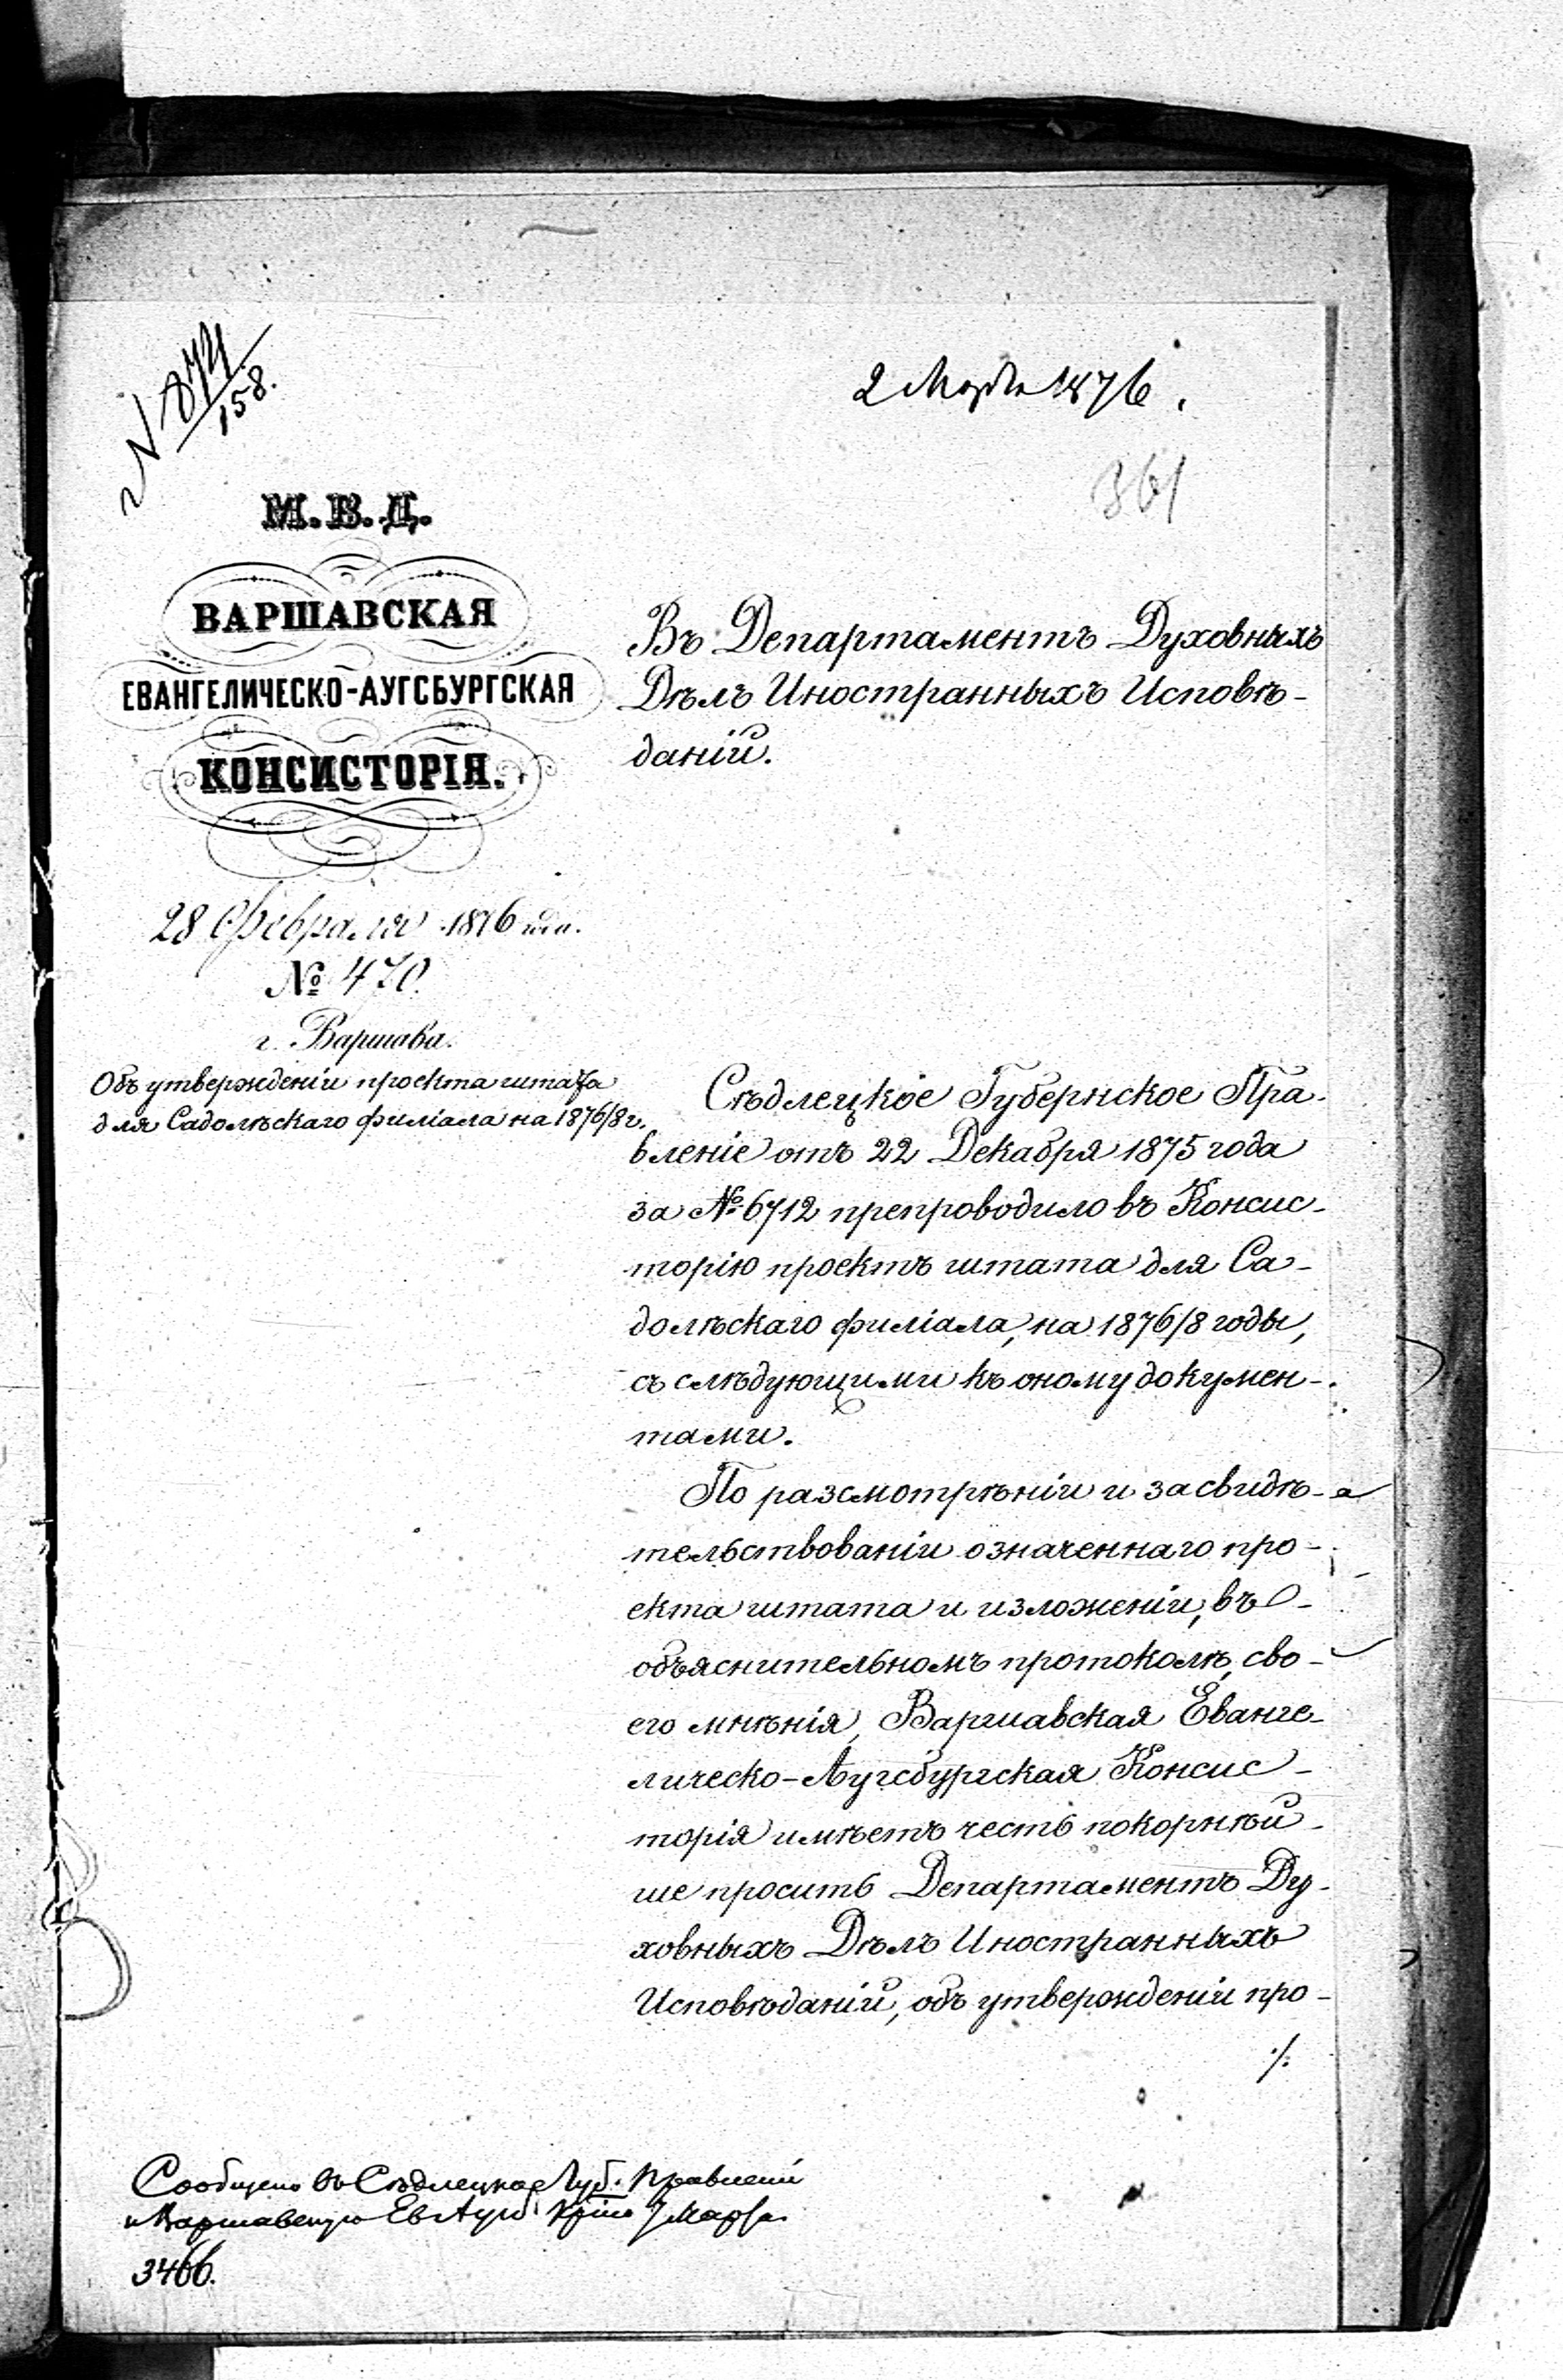 № 874/158.
2 Марта 1876.
361
М. В. Д.
ВАРШАВСКАЯ
ЕВАНГЕЛИЧЕСКО-АУГСБУРГСКАЯ
КОНСИСТОРІЯ.
28 Февраля 1876 года.
№ 470.
г. Варшава.
Объ утвержденіи проекта штата
для Садолѣскаго филіала на 1876/8 г.
Въ Департаментъ Духовныхъ
Дѣлъ Иностранныхъ Исповѣ-
даній.
Сѣдлецкое Губернское Пра-
вленіе отъ 22 Декабря 1875 года
за № 6712 препроводило въ Консис-
торію проектъ штата для Са-
долѣскаго филіала, на 1876/8 годы,
съ слѣдующими къ оному докумен-
тами.
По разсмотрѣніи и засвидѣ-
тельствованіи означеннаго про-
екта штата и изложеніи, въ
объяснительномъ протоколѣ, сво-
его мнѣнія, Варшавская Еванге-
лическо-Аугсбургская Консис-
торія имѣетъ честь покорнѣй-
ше просить Департаментъ Ду-
ховныхъ Дѣлъ Иностранныхъ
Исповѣданій, объ утвержденіи про-
./.
Сообщено въ Сѣдлецкое Губ. Правленіе
и Варшавскую Ев Аугс 7 Марта
3466.